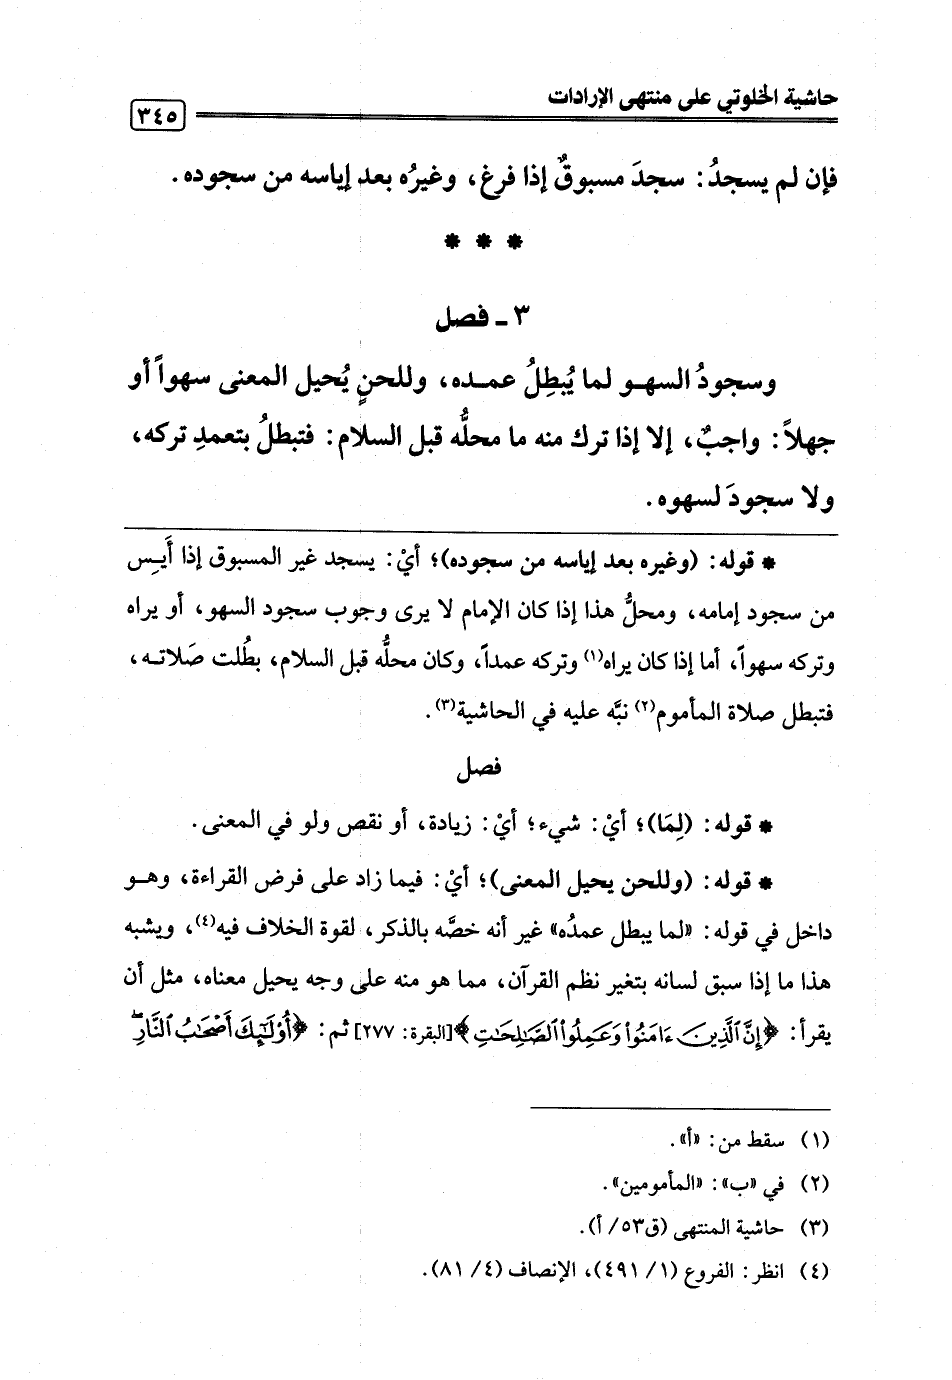 حاشية الخلوتي على منتهى الإرادات
٣٤٥
فإن لم يسجدُ: سجدَ مسبوقٌ إذا فرغ، وغيرُه بعد إياسه من سجوده.
* * *
٣ ـ فصل
وسجودُ السهـو لما يُبطِلُ عمـده، وللحنٍ يُحيل المعنى سهواً أو
جهلاً: واجبٌ، إلا إذا ترك منه ما محلُّه قبل السلام: فتبطلُ بتعمدِ تركه،
ولا سجودَ لسهوه.
* قوله: (وغيره بعد إياسه من سجوده)؛ أيْ: يسجد غير المسبوق إذا أَيـِس
من سجود إمامه، ومحلُّ هذا إذا كان الإمام لا يرى وجوب سجود السهو، أو يراه
وتركه سهواً، أما إذا كان يراه(١) وتركه عمداً، وكان محلُّه قبل السلام، بطُلت صَلاتـه،
فتبطل صلاة المأموم(٢) نبَّه عليه في الحاشية(٣).
فصل
* قوله: (لِمَا)؛ أيْ: شيء؛ أيْ: زيادة، أو نقص ولو في المعنى.
* قوله: (وللحن يحيل المعنى)؛ أيْ: فيما زاد على فرض القراءة، وهـو
داخل في قوله: «لما يبطل عمدُه» غير أنه خصَّه بالذكر، لقوة الخلاف فيه(٤)، ويشبه
هذا ما إذا سبق لسانه بتغير نظم القرآن، مما هو منه على وجه يحيل معناه، مثل أن
يقرأ: ﴿إِنَّ ٱلَّذِينَ ءَامَنُواْ وَعَمِلُواْ ٱلصَّـٰلِحَـٰتِ﴾ [البقرة: ٢٧٧] ثم: ﴿أُوْلَـٰٓئِكَ أَصْحَـٰبُ ٱلنَّارِۖ
(١) سقط من: «أ».
(٢) في «ب»: «المأمومين».
(٣) حاشية المنتهى (ق٥٣/ أ).
(٤) انظر: الفروع (١/ ٤٩١)، الإنصاف (٤/ ٨١).